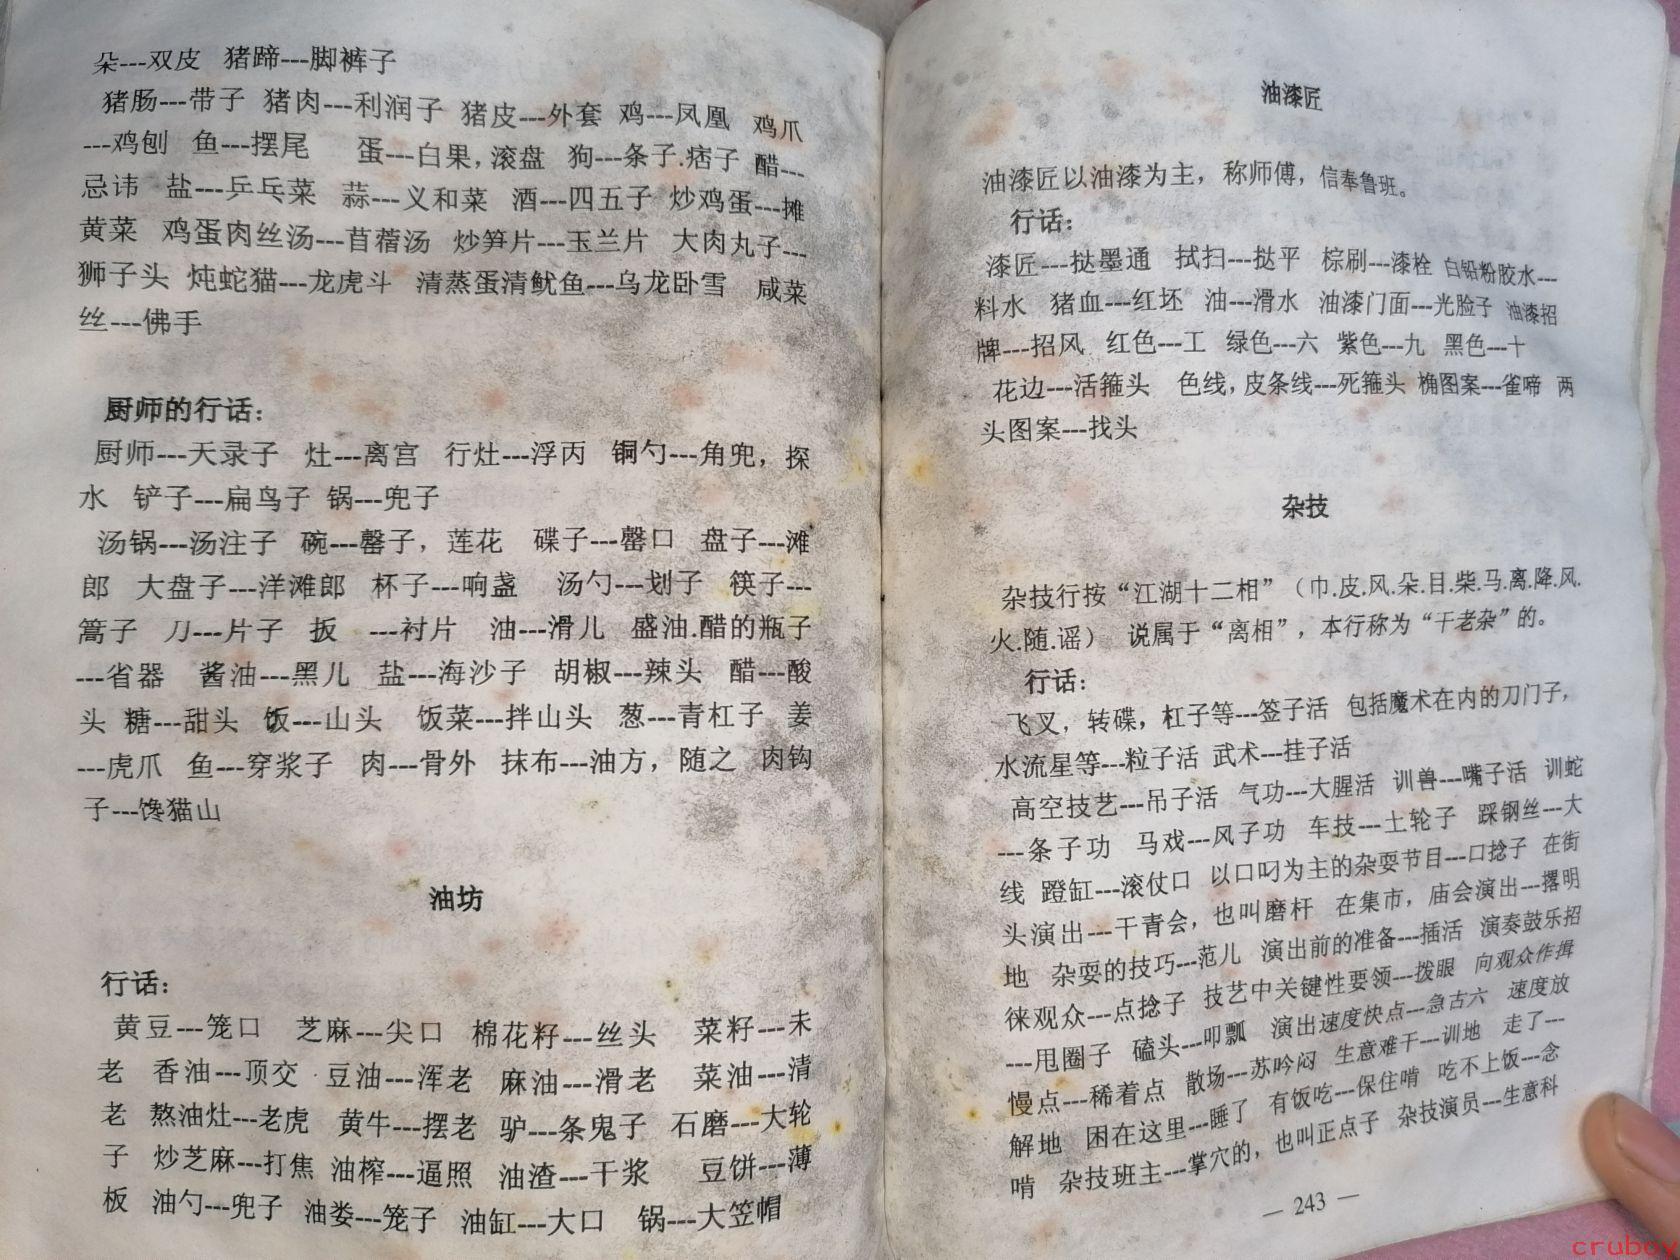 朵---双皮 猪蹄---脚裤子
猪肠---带子 猪肉---利润子 猪皮---外套 鸡---凤凰 鸡爪
---鸡刨 鱼---摆尾 蛋---白果，滚盘 狗---条子.痞子 醋---
忌讳 盐---乒乓菜 蒜---义和菜 酒---四五子 炒鸡蛋---摊
黄菜 鸡蛋肉丝汤---苜蓿汤 炒笋片---玉兰片 大肉丸子---
狮子头 炖蛇猫---龙虎斗 清蒸蛋清鱿鱼---乌龙卧雪 咸菜
丝---佛手
厨师的行话：
厨师---天录子 灶---离宫 行灶---浮丙 铜勺---角兜，探
水 铲子---扁鸟子 锅---兜子
汤锅---汤注子 碗---罄子，莲花 碟子---罄口 盘子---滩
郎 大盘子---洋滩郎 杯子---响盏 汤勺---划子 筷子---
篙子 刀---片子 扳 ---衬片 油---滑儿 盛油.醋的瓶子
---省器 酱油---黑儿 盐---海沙子 胡椒---辣头 醋---酸
头 糖---甜头 饭---山头 饭菜---拌山头 葱---青杠子 姜
---虎爪 鱼---穿浆子 肉---骨外 抹布---油方，随之 肉钩
子---馋猫山
油坊
行话：
黄豆---笼口 芝麻---尖口 棉花籽---丝头 菜籽---未
老 香油---顶交 豆油---浑老 麻油---滑老 菜油---清
老 熬油灶---老虎 黄牛---摆老 驴---条鬼子 石磨---大轮
子 炒芝麻---打焦 油榨---逼照 油渣---干浆 豆饼---薄
板 油勺---兜子 油娄---笼子 油缸---大口 锅---大笠帽
油漆匠
油漆匠以油漆为主，称师傅，信奉鲁班。
行话：
漆匠---挞墨通 拭扫---挞平 棕刷---漆栓 白铅粉胶水---
料水 猪血---红坯 油---滑水 油漆门面---光脸子 油漆招
牌---招风 红色---工 绿色---六 紫色---九 黑色---十
花边---活箍头 色线，皮条线---死箍头 椭图案---雀啼 两
头图案---找头
杂技
杂技行按“江湖十二相”（巾.皮.风.朵.目.柴.马.离.降.风.
火.随.谣） 说属于“离相”，本行称为“干老杂”的。
行话：
飞叉，转碟，杠子等---签子活 包括魔术在内的刀门子，
水流星等---粒子活 武术---挂子活
高空技艺---吊子活 气功---大腥活 训兽---嘴子活 训蛇
---条子功 马戏---风子功 车技---土轮子 踩钢丝---大
线 蹬缸---滚仗口 以口叼为主的杂耍节目---口捻子 在街
头演出---干青会，也叫磨杆 在集市，庙会演出---撂明
地 杂耍的技巧---范儿 演出前的准备---插活 演奏鼓乐招
徕观众---点捻子 技艺中关键性要领---拨眼 向观众作揖
---甩圈子 磕头---叩瓢 演出速度快点---急古六 速度放
慢点---稀着点 散场---苏吟闷 生意难干---训地 走了---
解地 困在这里---睡了 有饭吃---保住啃 吃不上饭---念
啃 杂技班主---掌穴的，也叫正点子 杂技演员---生意科
— 243 —
cruboy